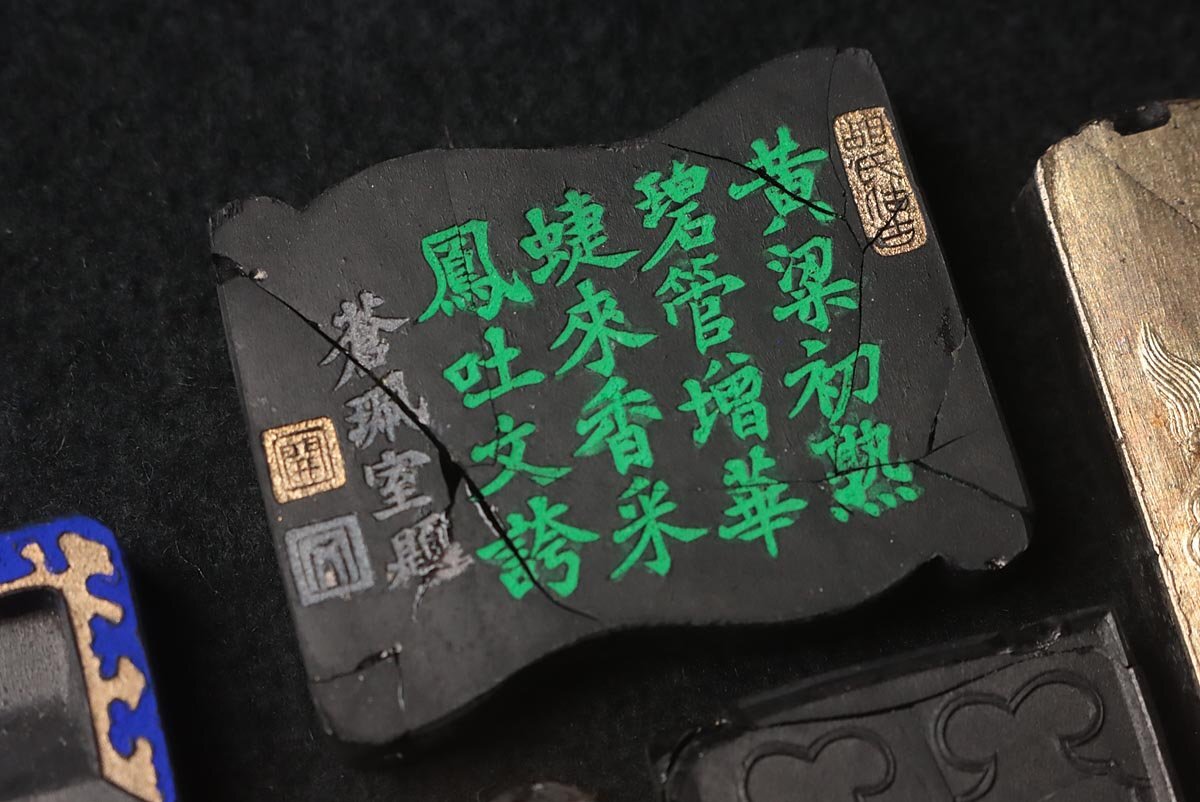 胡氏
黃粱初熟
碧管增華
蜨來香采
鳳吐文誇
蒼珮室題
開